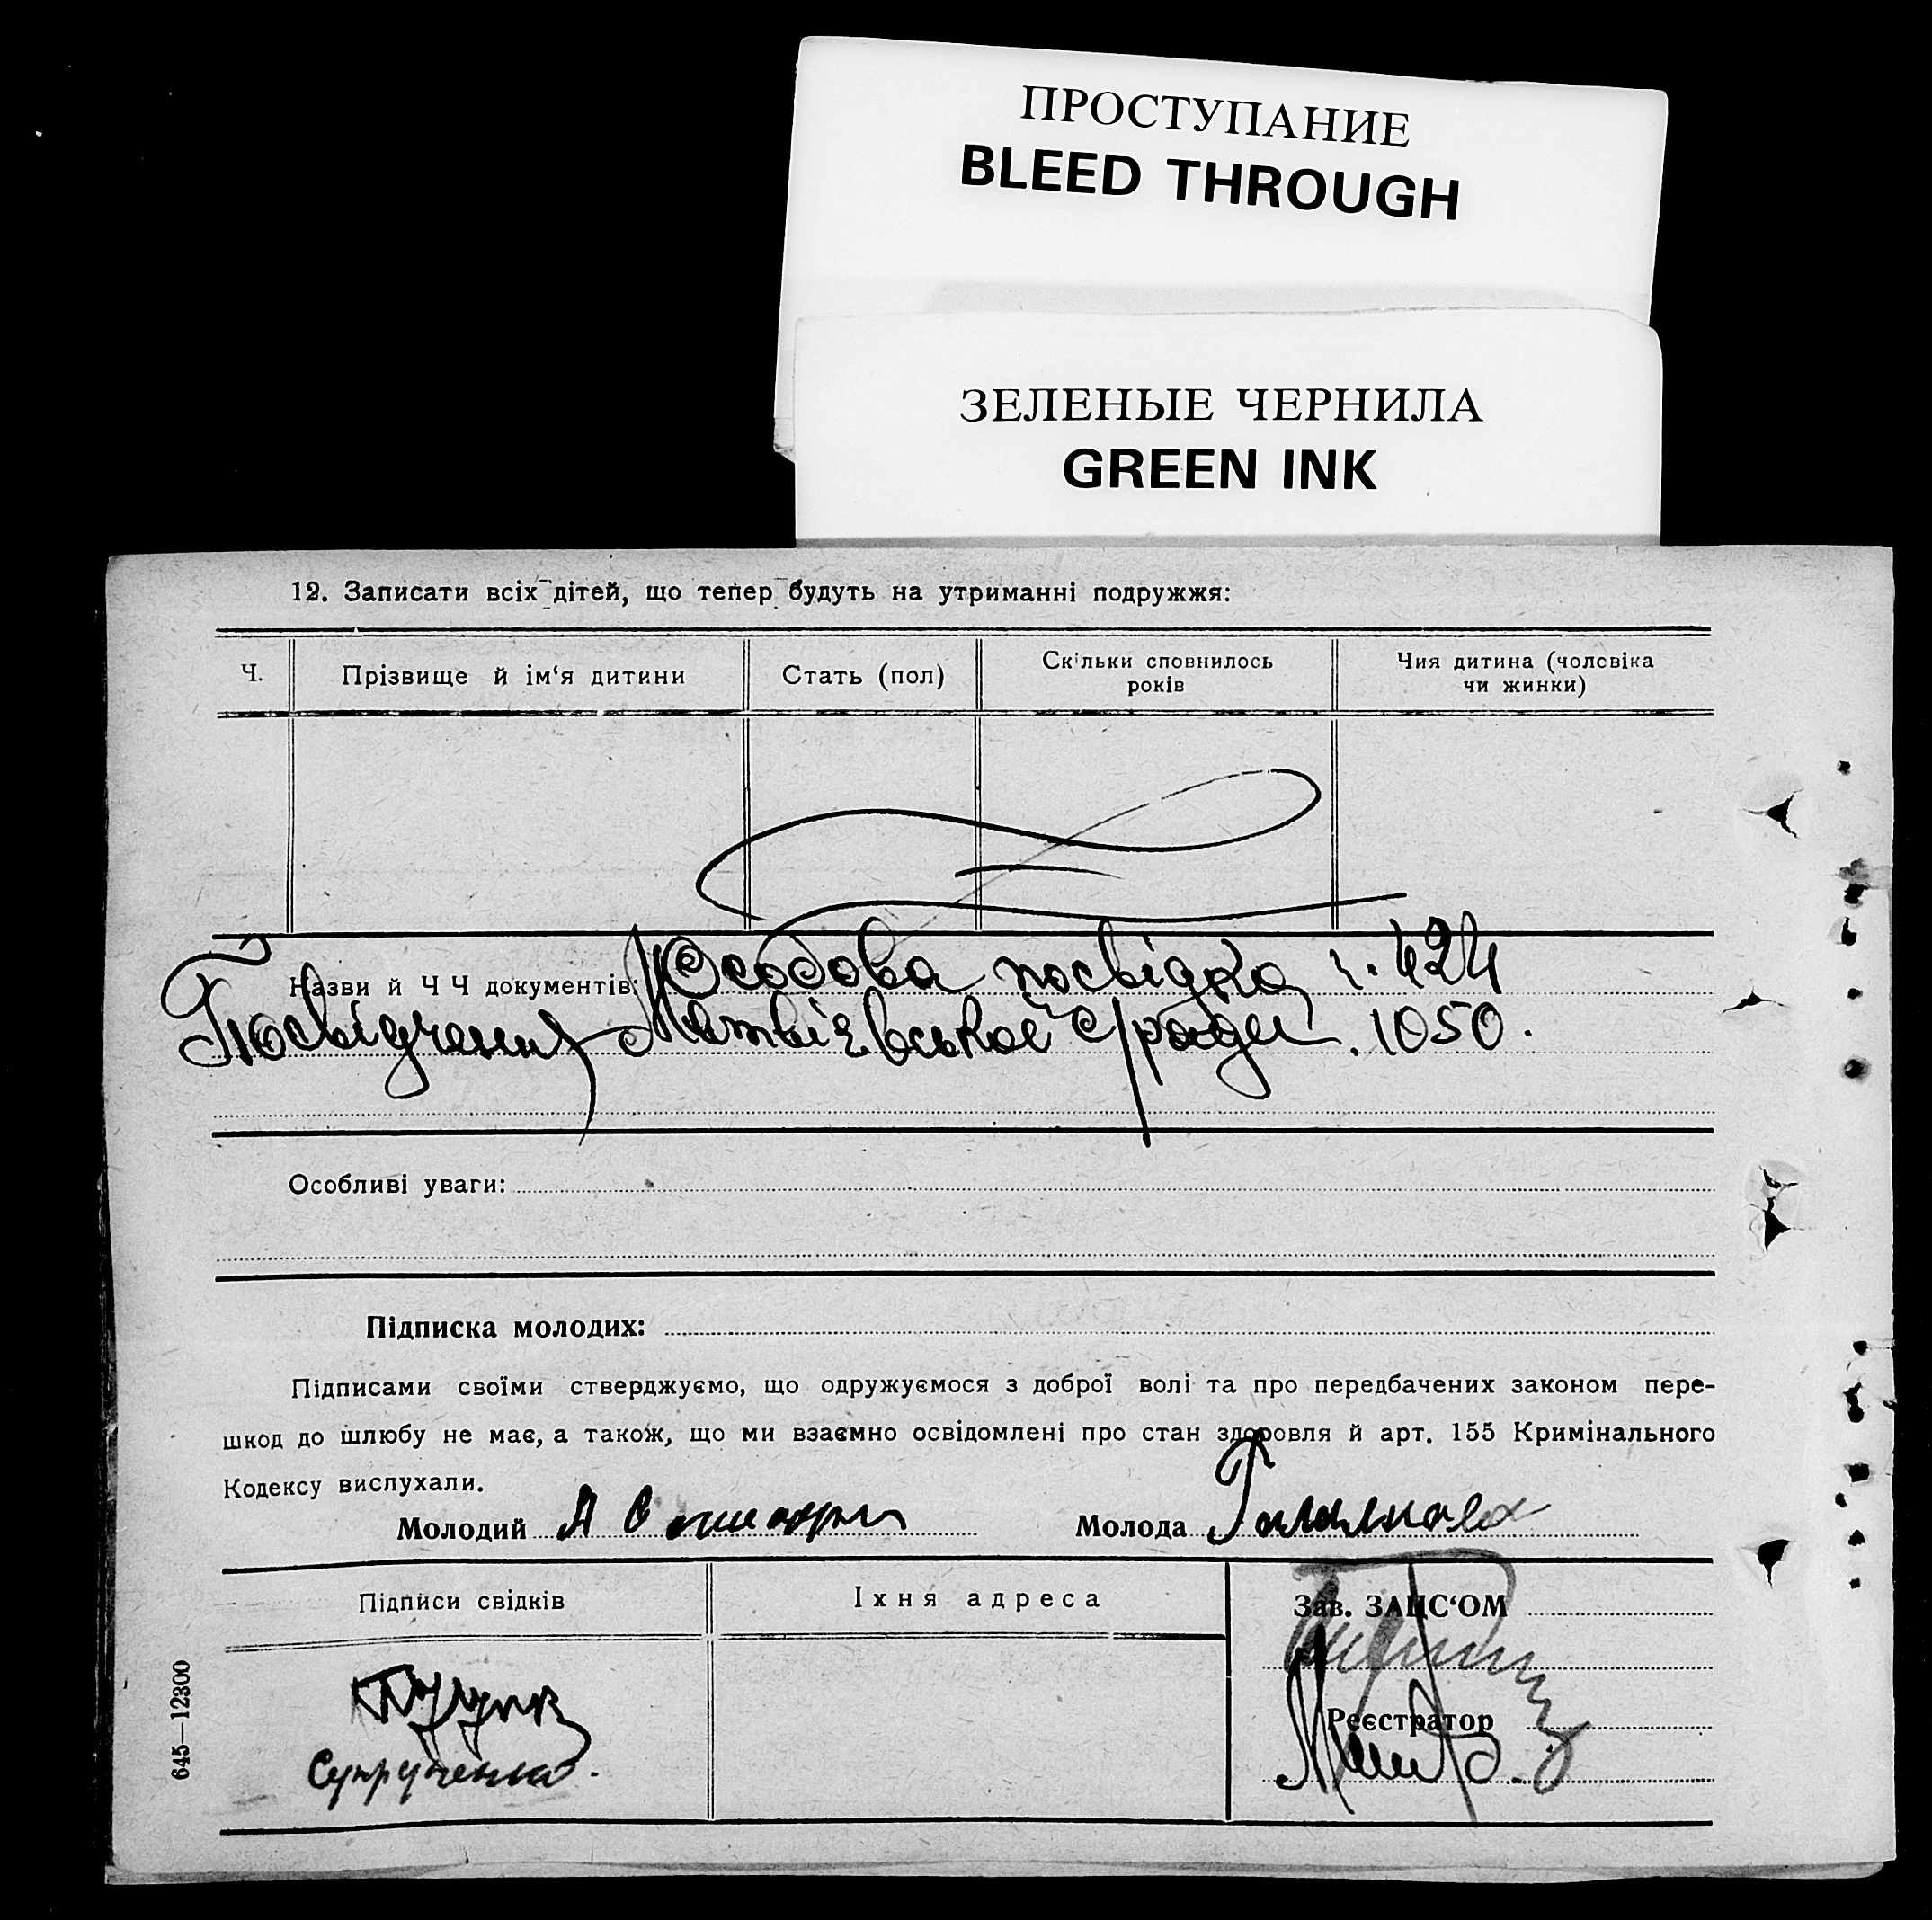 ПРОСТУПАНИЕ
BLEED THROUGH
ЗЕЛЕНЫЕ ЧЕРНИЛА
GREEN INK
12. Записати всіх дітей, що тепер будуть на утриманні подружжя:
Ч.
Прізвище й ім‘я дитини
Стать (пол)
Скільки сповнилось
років
Чия дитина (чоловіка
чи жинки)
Назви й Ч Ч документів: Особова посвідка ч. 424
Посвідчення Матвієвської с/ради. 1050.
Особливі уваги:
Підписка молодих:
Підписами своїми стверджуємо, що одружуємося з доброї волі та про передбачених законом пере-
шкод до шлюбу не має, а також, що ми взаємно освідомлені про стан здоровля й арт. 155 Кримінального
Кодексу вислухали.
Молодий
Молода
Підписи свідків
Їхня адреса
Зав. ЗАЦС‘ОМ
Реєстратор
Супруненко.
645—12300